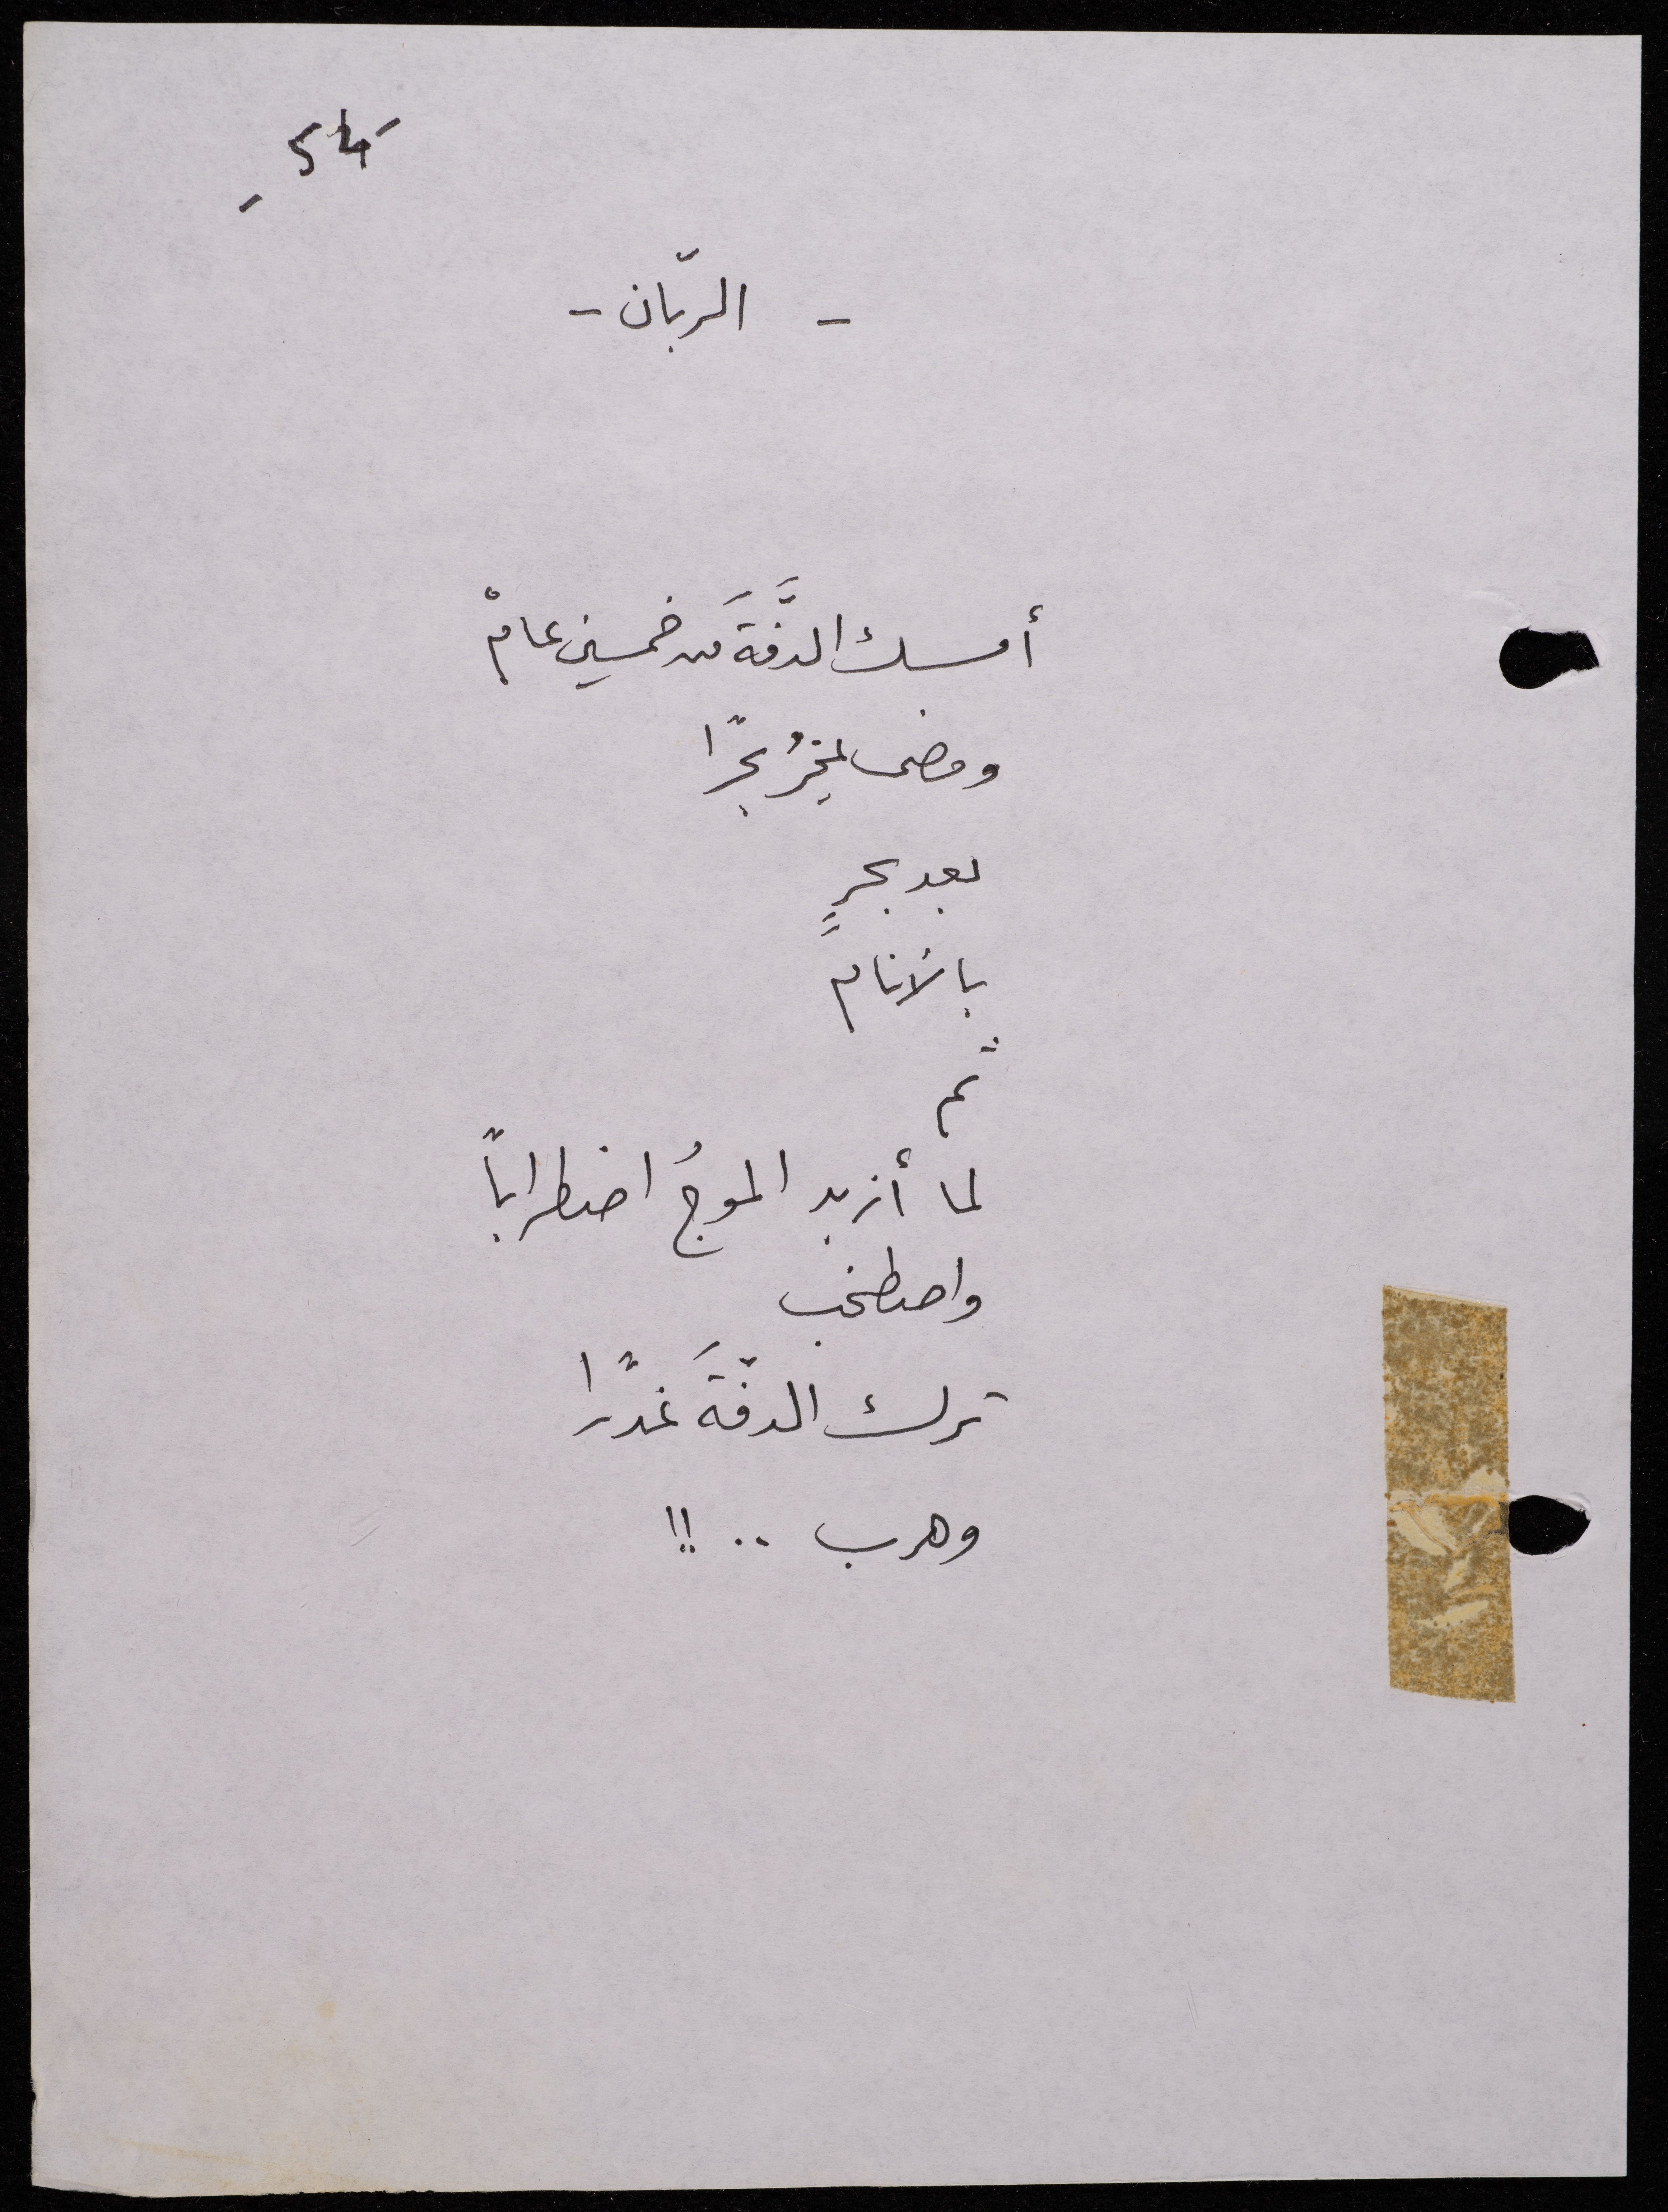 - 54 -
- الربّان -
أمسك الدفَّةَ من خمسين عامْ
ومضى يمخرُ بحرًا
بعد بحرٍ
بالأنام
ثم
لما أزبد الموجُ اضطراباً
واصطخب
ترك الدفّةَ غدرًا
وهرب .. !!